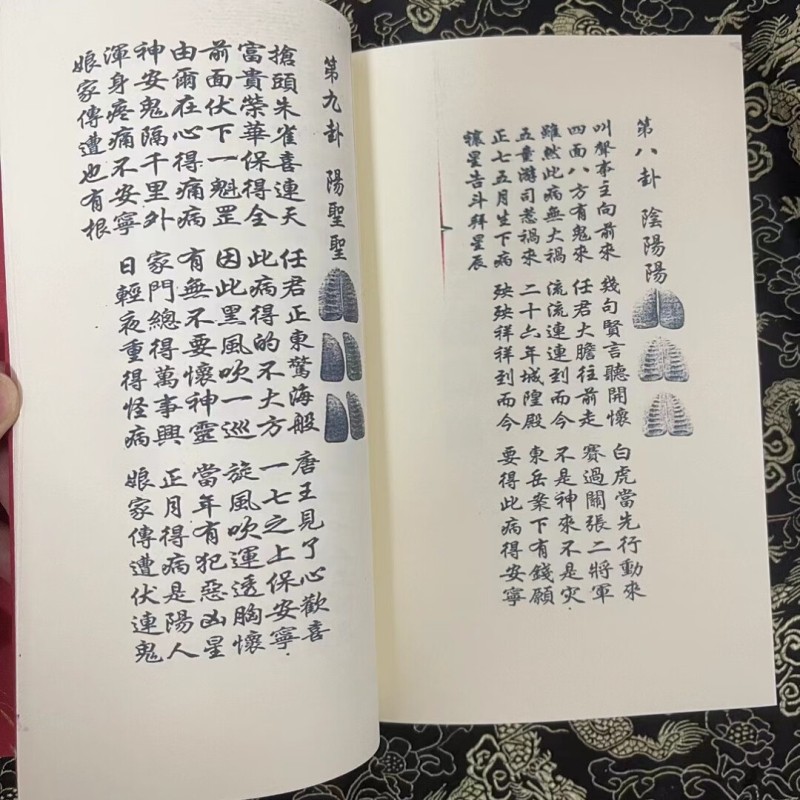 第八卦 陰陽陽
叫聲本主向前來 幾句賢言聽開懷 白虎當先行動來
四面八方有鬼來 任君大膽往前走 賽過關張二將軍
雖然此病無大禍 流流連連到而今 不是神來不是灾
五童游司惹禍來 二十六年城隍殿 東岳案下有錢願
正七五月生下病 殃殃祥祥到而今 要得此病得安寧
禳星告斗拜星辰
第九卦 陽聖聖
搶頭朱雀喜連天 任君正東驚海般 唐王見了心歡喜
富貴榮華保得全 此病得的不大方 一七之上保安寧
前面伏下一魁罡 因此黑風吹一巡 旋風吹運透胸懷
由爾在心得痛病 有無不要懷神靈 當年有犯惡凶星
神安鬼隔千里外 家門總得萬事興 正月得病是陽人
渾身疼痛不安寧 日輕夜重得怪病 娘家傳遭伏連鬼
娘家傳遭也有根